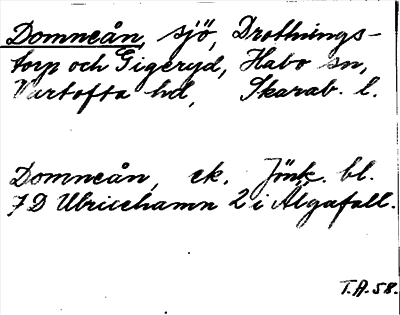 Domneån, sjö, Drottnings-
torp och Gigeryd, Habo sn,
Vartofta hd, Skarab. l.
Domneån, ek. Jönk. bl.
7 D Ulricehamn 2 i Älgafall.
T.A. 58.